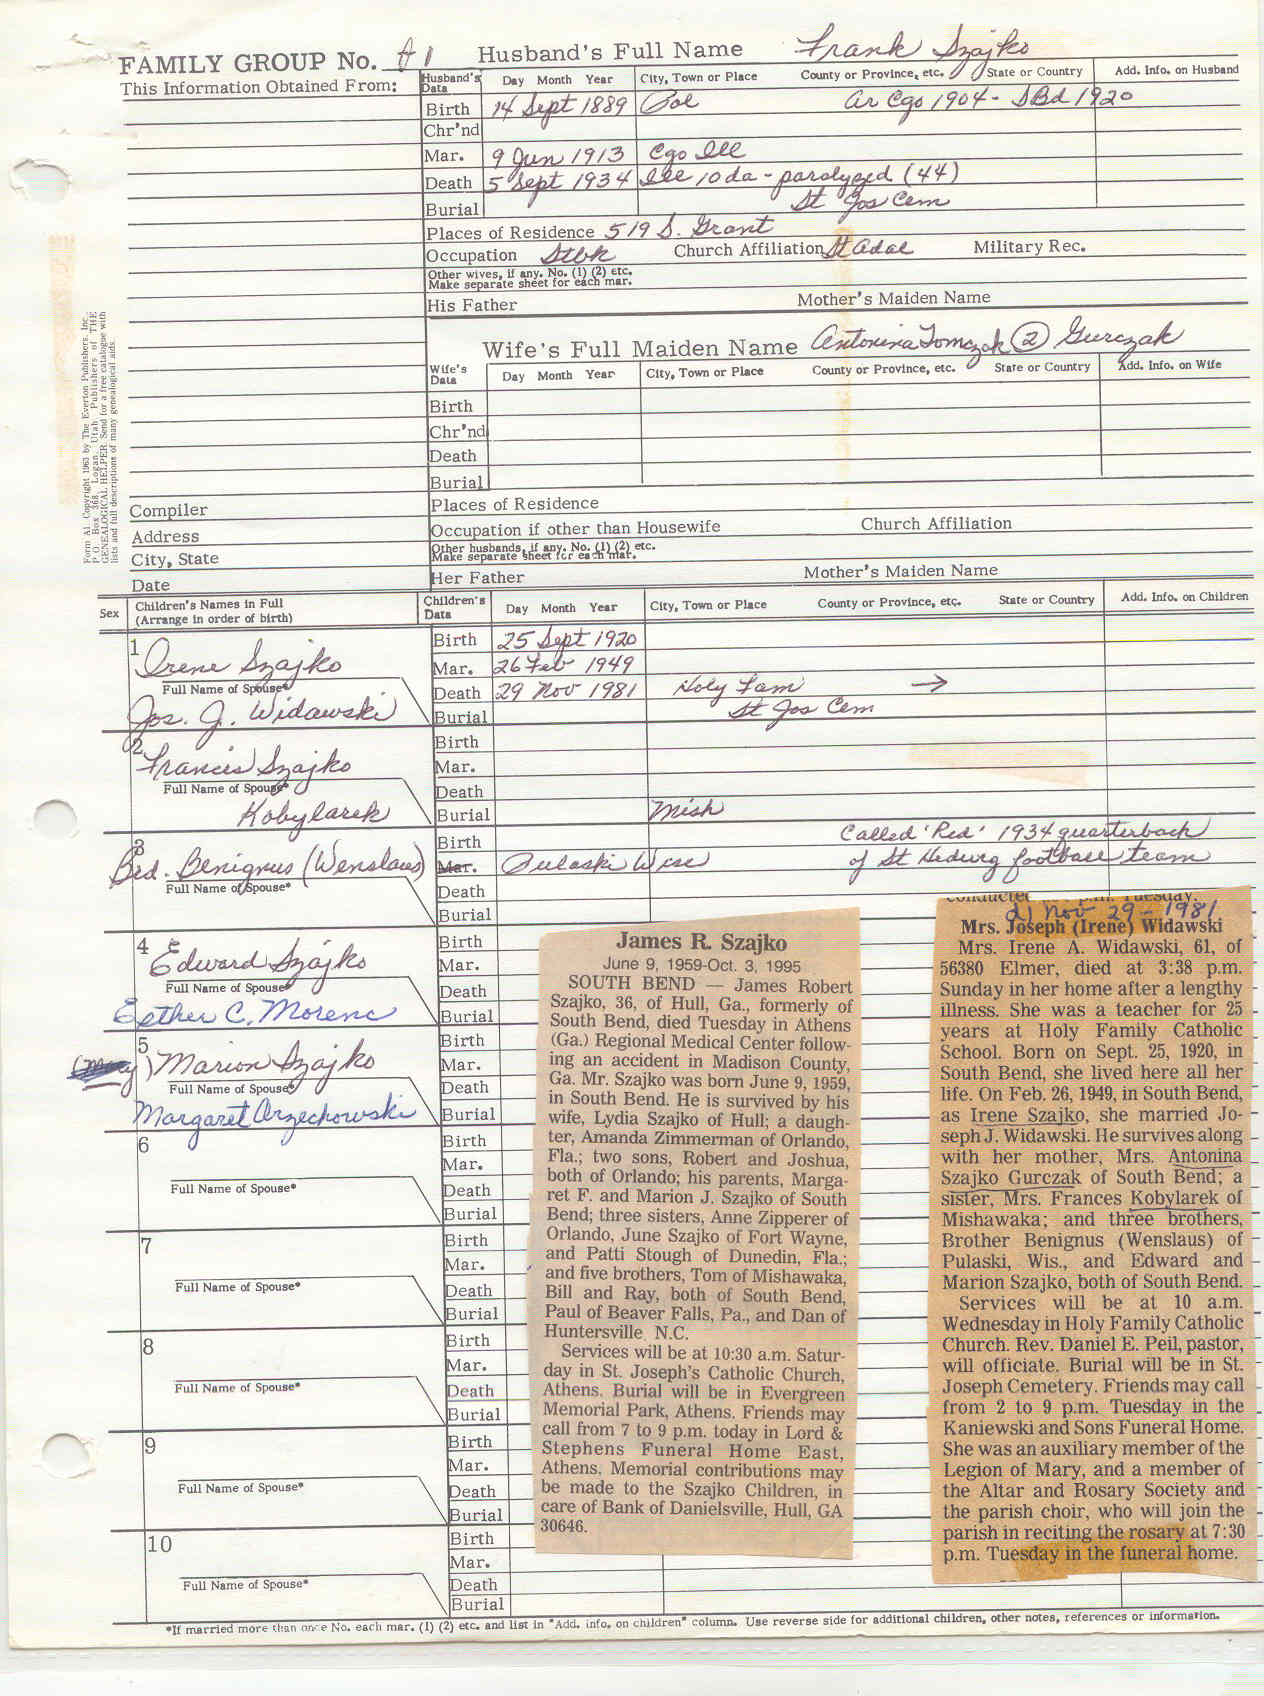 FAMILY GROUP No. A1 Husband's Full Name Frank Szajko
This Information Obtained From:
Husband's Data Day Month Year City, Town or Place County or Province, etc. State or Country Add. Info. on Husband
Birth 14 Sept 1889 Pol ar Cgo 1904 - SBd 1920
Chr'nd
Mar. 9 Jun 1913 Cgo Ill
Death 5 Sept 1934 Ill 10 da - paralyzed (44)
Burial St Jos Cem
Places of Residence 519 S. Grant
Occupation Stbk Church Affiliation St Adal Military Rec.
Other wives, if any. No. (1) (2) etc.
Make separate sheet for each mar.
His Father Mother's Maiden Name
Wife's Full Maiden Name Antonina Tomczak (2) Gurczak
Wife's Data Day Month Year City, Town or Place County or Province, etc. State or Country Add. Info. on Wife
Birth
Chr'nd
Death
Burial
Compiler Places of Residence
Address Occupation if other than Housewife Church Affiliation
City, State Other husbands, if any. No. (1) (2) etc.
Make separate sheet for each mar.
Date Her Father Mother's Maiden Name
Form A1. Copyright 1963 by The Everton Publishers, Inc.,
P.O. Box 368, Logan, Utah Publishers of THE
GENEALOGICAL HELPER. Send for a free catalogue with
lists and full descriptions of many genealogical aids.
Sex Children's Names in Full
(Arrange in order of birth)
Children's Data Day Month Year City, Town or Place County or Province, etc. State or Country Add. Info. on Children
1 Birth 25 Sept 1920
Irene Szajko Mar. 26 Feb 1949
Full Name of Spouse* Death 29 Nov 1981 Holy Fam →
Jos. J. Widawski Burial St Jos Cem
2 Birth
Francis Szajko Mar.
Full Name of Spouse* Death
Kobylarek Burial Mish
3 Birth Called 'Red' 1934 quarterback
Brd. Benignus (Wenslaus) Mar. Pulaski Wisc of St Hedwig football team
Full Name of Spouse* Death
Burial
4 Birth
Edward Szajko Mar.
Full Name of Spouse* Death
Esther C. Morenc Burial
5 Birth
Marion Szajko Mar.
Full Name of Spouse* Death
Margaret Orzechowski Burial
6 Birth
Mar.
Full Name of Spouse* Death
Burial
7 Birth
Mar.
Full Name of Spouse* Death
Burial
8 Birth
Mar.
Full Name of Spouse* Death
Burial
9 Birth
Mar.
Full Name of Spouse* Death
Burial
10 Birth
Mar.
Full Name of Spouse* Death
Burial
James R. Szajko
June 9, 1959-Oct. 3, 1995
SOUTH BEND — James Robert
Szajko, 36, of Hull, Ga., formerly of
South Bend, died Tuesday in Athens
(Ga.) Regional Medical Center follow-
ing an accident in Madison County,
Ga. Mr. Szajko was born June 9, 1959,
in South Bend. He is survived by his
wife, Lydia Szajko of Hull; a daugh-
ter, Amanda Zimmerman of Orlando,
Fla.; two sons, Robert and Joshua,
both of Orlando; his parents, Marga-
ret F. and Marion J. Szajko of South
Bend; three sisters, Anne Zipperer of
Orlando, June Szajko of Fort Wayne,
and Patti Stough of Dunedin, Fla.;
and five brothers, Tom of Mishawaka,
Bill and Ray, both of South Bend,
Paul of Beaver Falls, Pa., and Dan of
Huntersville, N.C.
Services will be at 10:30 a.m. Satur-
day in St. Joseph's Catholic Church,
Athens. Burial will be in Evergreen
Memorial Park, Athens. Friends may
call from 7 to 9 p.m. today in Lord &
Stephens Funeral Home East,
Athens. Memorial contributions may
be made to the Szajko Children, in
care of Bank of Danielsville, Hull, GA
30646.
conducted p.m. Tuesday.
d) Nov 29 - 1981
Mrs. Joseph (Irene) Widawski
Mrs. Irene A. Widawski, 61, of
56380 Elmer, died at 3:38 p.m.
Sunday in her home after a lengthy
illness. She was a teacher for 25
years at Holy Family Catholic
School. Born on Sept. 25, 1920, in
South Bend, she lived here all her
life. On Feb. 26, 1949, in South Bend,
as Irene Szajko, she married Jo-
seph J. Widawski. He survives along
with her mother, Mrs. Antonina
Szajko Gurczak of South Bend; a
sister, Mrs. Frances Kobylarek of
Mishawaka; and three brothers,
Brother Benignus (Wenslaus) of
Pulaski, Wis., and Edward and
Marion Szajko, both of South Bend.
Services will be at 10 a.m.
Wednesday in Holy Family Catholic
Church. Rev. Daniel E. Peil, pastor,
will officiate. Burial will be in St.
Joseph Cemetery. Friends may call
from 2 to 9 p.m. Tuesday in the
Kaniewski and Sons Funeral Home.
She was an auxiliary member of the
Legion of Mary, and a member of
the Altar and Rosary Society and
the parish choir, who will join the
parish in reciting the rosary at 7:30
p.m. Tuesday in the funeral home.
*If married more than once No. each mar. (1) (2) etc. and list in "Add. info. on children" column. Use reverse side for additional children, other notes, references or information.